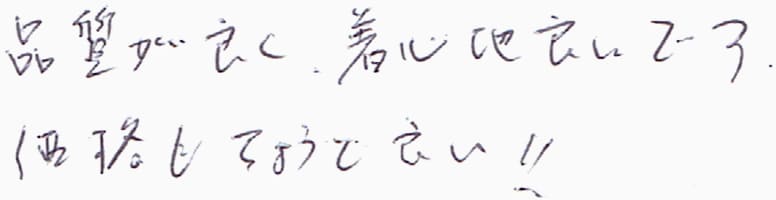 品質が良く、着心地良いです.
価格もちょうど良い!!